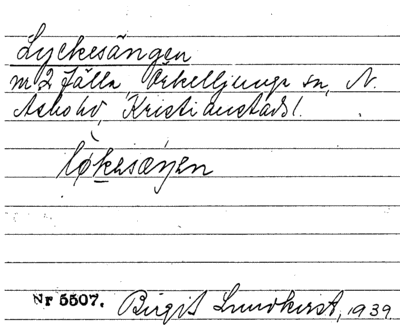 Lyckesängen
m 2 Fälla, Örkelljunga sn, N.
Åsbo hd, Kristianstads l.
lø̀kesæŋen
Nr 5507. Birgit Lundkvist, 1939.